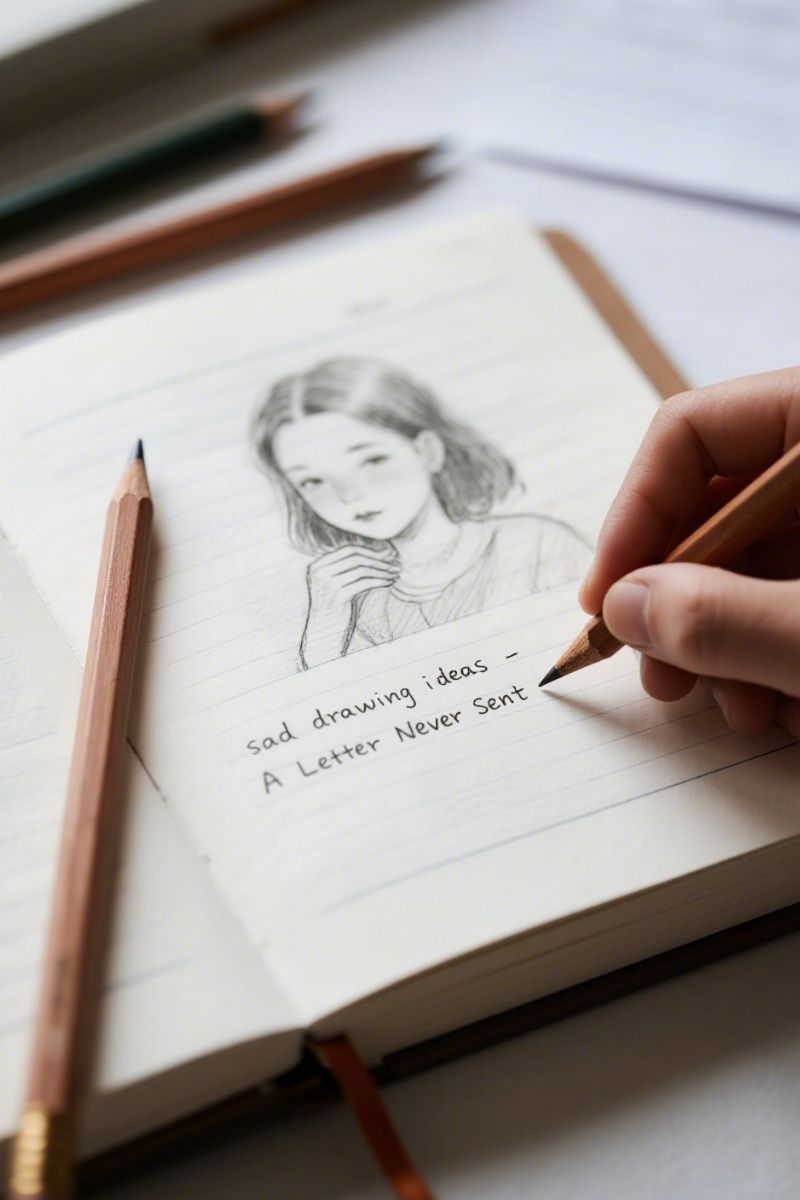 sad drawing ideas -
A Letter Never Sent